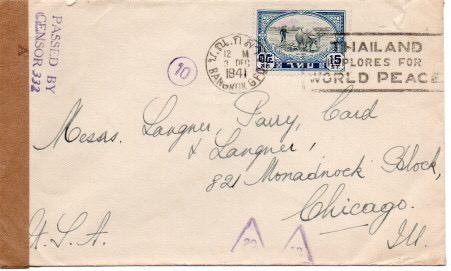 PASSED BY
CENSOR 332
A
10
12 M
2 DEC
1941
BANGKOK G.P.O.
15
THAILAND
EXPLORES FOR
WORLD PEACE
Messrs. Langner, Parry, Card
& Langner,
821 Monadnock Block,
Chicago.
Ill.
U.S.A.